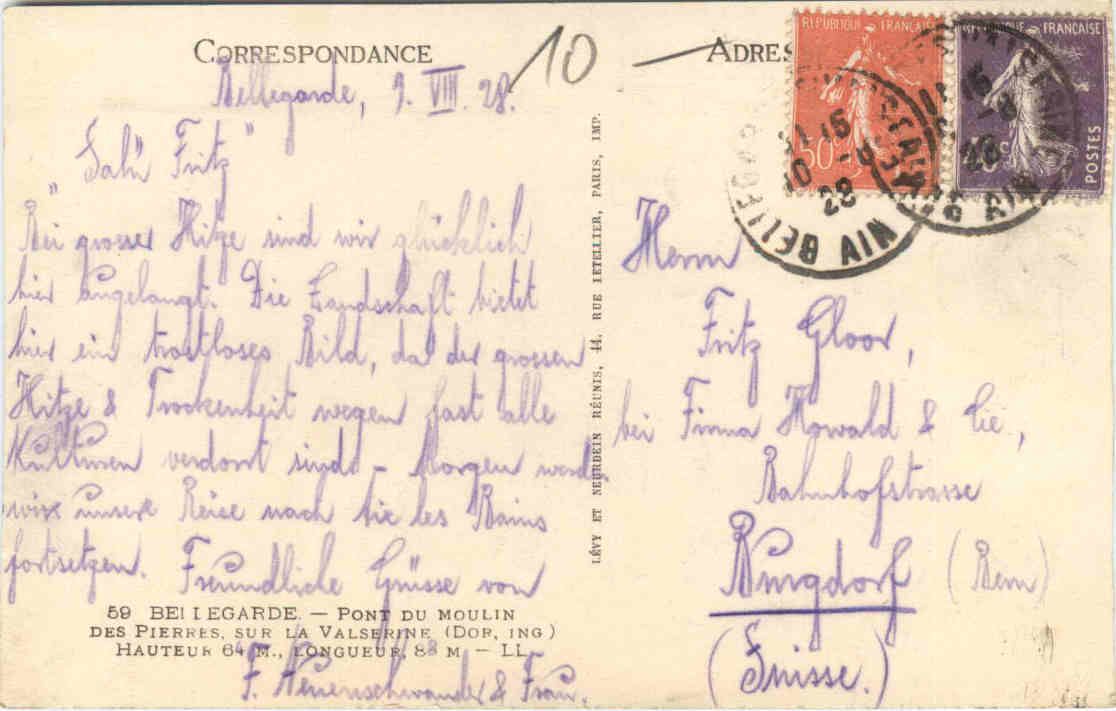 CORRESPONDANCE
Bellegarde, 9. VIII. 28.
10
"Sali Fritz"
Bei grosser Hitze sind wir glücklich
hier angelangt. Die Landschaft bietet
hier ein trostloses Bild, da der grossen
Hitze & Trockenheit wegen fast alle
Kulturen verdorrt sind - Morgen werd.
wir unsere Reise nach Aix les Bains
fortsetzen. Freundliche Grüsse von
F. Neuenschwander & Frau.
59 BELLEGARDE. — PONT DU MOULIN
DES PIERRES, SUR LA VALSERINE (DOR, ING)
HAUTEUR 64 M., LONGUEUR, 83 M — LL
LÉVY ET NEURDEIN RÉUNIS, 44, RUE LETELLIER, PARIS, IMP.
ADRES
RÉPUBLIQUE FRANÇAISE
50c
RÉPUBLIQUE FRANÇAISE
40c
POSTES
BELLEGARDE AIN
15
10 - 8
28
Herrn
Fritz Gloor,
bei Firma Howald & Cie,
Bahnhofstrasse
Burgdorf (Bern)
(Suisse.)